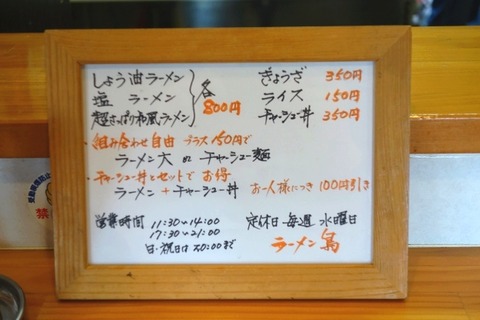 しょう油ラーメン
塩 ラーメン
超さっぱり和風ラーメン
各
800円
ぎょうざ 350円
ライス 150円
チャーシュー丼 350円
・組み合わせ自由 プラス150円で
ラーメン大 or チャーシュー麺
・チャーシュー丼とセットでお得
ラーメン + チャーシュー丼 お一人様につき 100円引き
営業時間 11:30~14:00
17:30~21:00
日・祝日は 20:00まで
定休日 毎週 水曜日
ラーメン
禁